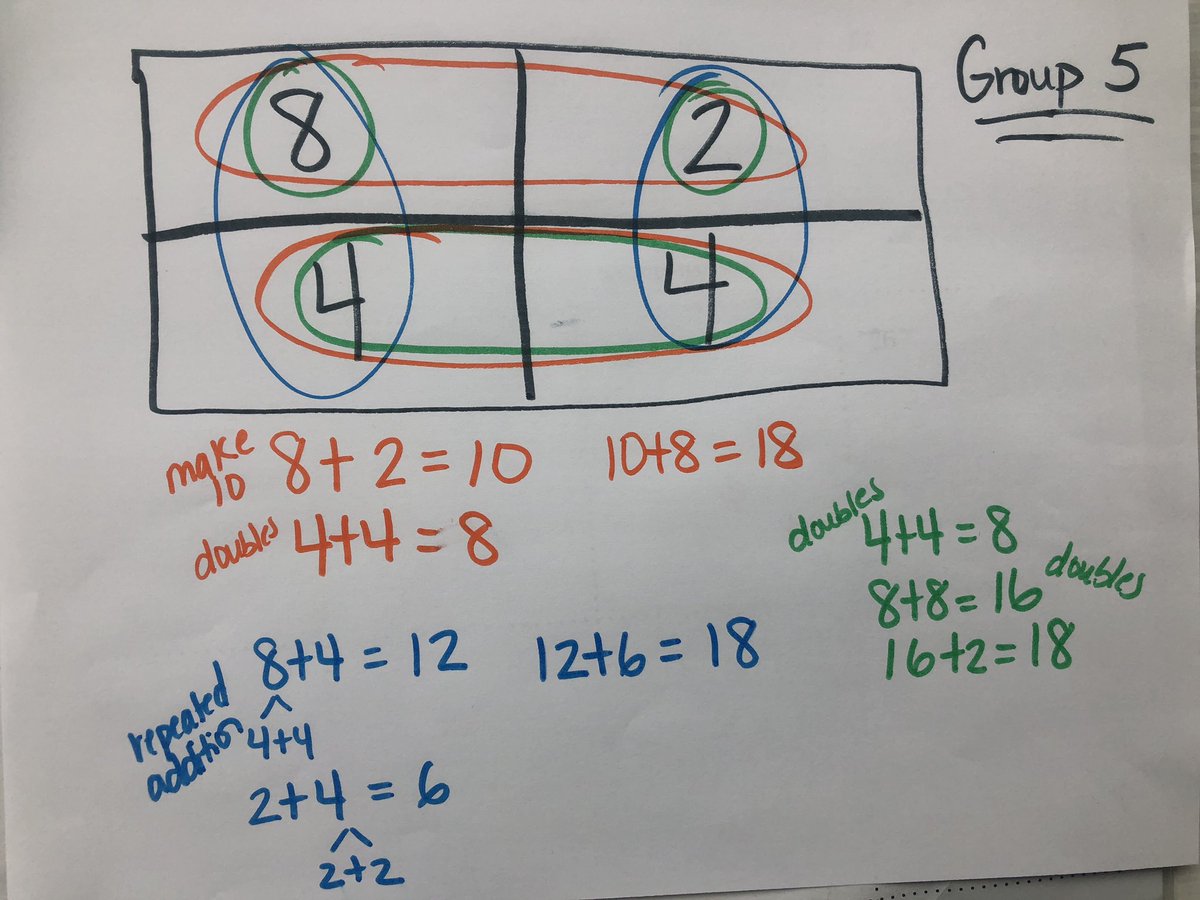 Group 5
8 2
4 4
make 10 8+2=10 10+8=18
doubles 4+4=8
doubles 4+4=8
8+8=16 doubles
16+2=18
repeated addition 8+4=12 12+6=18
4+4
2+4=6
2+2